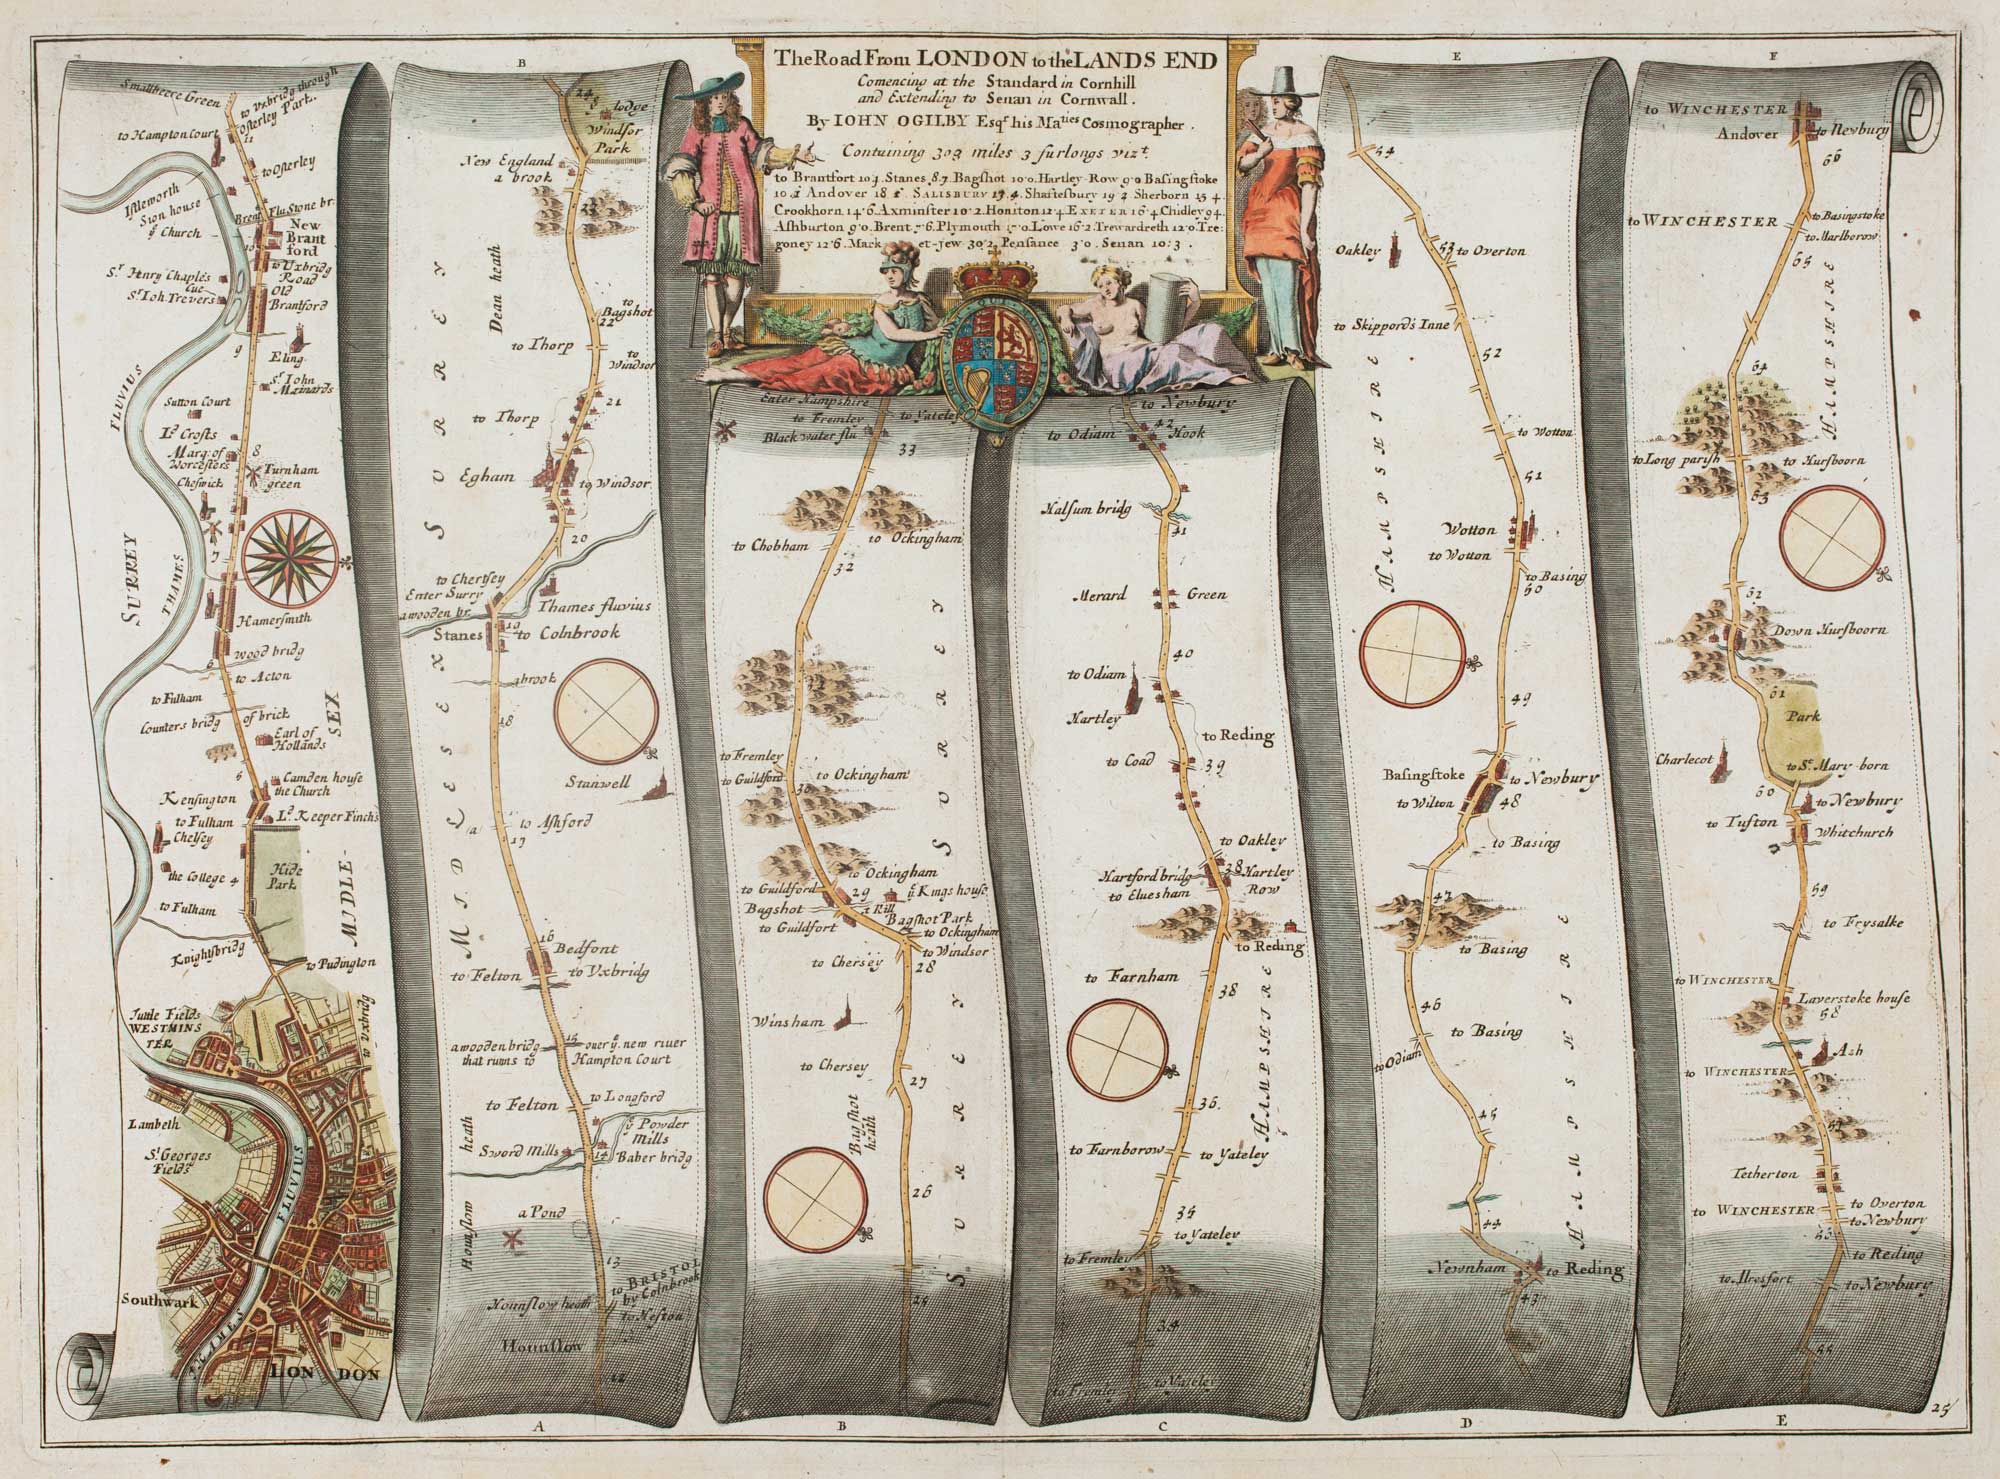 The Road From LONDON to the LANDS END
Comencing at the Standard in Cornhill
and Extending to Senan in Cornwall.
By IOHN OGILBY Esqr. his Maties Cosmographer.
Containing 303 miles 3 furlongs vizt.
to Brantfort 10'4. Stanes 8'7. Bagshot 10'0. Hartley-Row 9'0 Basingstoke
10'2 Andover 18'1. SALISBURY 17'4. Shaftesbury 19'4 Sherborn 15'4
Crookhorn 14'6. Axminster 10'2. Honiton 12'4. EXETER 16'4 Chidley 9'4.
Ashburton 9'0. Brent 7'6. Plymouth 17'0. Lowe 16'2. Trewardreth 12'0. Tre:
goney 12'6. Mark et-jew 30'2. Pensance 3'0. Senan 10:3.
Smallbeere Green
to Uxbridg through
Osterley Park.
to Hampton Court
11
to Osterley
Istleworth
Sion house
ye Church
Brent Flu Stone br.
New
Brant
ford
10
to Uxbridg
Road
Sr. Henry Chaples
Cue
Sr. Ioh. Trevers
Old
Brantford
9
Eling
Sr. Iohn
Mainards
FLUVIUS
Sutton Court
Ld. Crofts
Marq: of
Worcesters
8
Turnham
green
Cheswick
SURREY
THAMES
7
Hamersmith
wood bridg
6
to Acton
to Fulham
Counters bridg of brick
Earl of
Hollands
SEX
5
Camden house
the Church
Kensington
to Fulham
Ld. Keeper Finch's
Chelsey
the College
4
Hide
Park
MIDLE-
to Fulham
Knightsbridg
to Pudington
to Uxbridg
Tuttle Fields
WESTMINS
TER
Lambeth
St. Georges
Fields
FLUVIUS
Southwark
THAMES
LONDON
B
24
lodge
Windsor
Park
New England
a brook
23
Dean heath
to
Bagshot
22
to Thorp
to
Windsor
SURREY
21
to Thorp
Egham
to Windsor
20
to Chertsey
Enter Surry
a wooden br.
Thames fluvius
Stanes
19
to Colnbrook
a brook
18
Stanwell
to Ashford
17
MIDLESEX
16
Bedfont
to Felton
to Uxbridg
a wooden bridg
that runns to
15
over ye. new river
Hampton Court
to Felton
to Longford
ye Powder
Mills
Sword Mills
14
Baber bridg
Hounslow heath
a Pond
13
to BRISTOL
by Colnbrook
Hounslow heath
to Heston
Hounslow
12
A
Enter Hampshire
to Fremley
to Yateley
Black water flu
33
to Chobham
to Ockingham
32
to Fremley
to Guildford
to Ockingham
30
SURREY
to Ockingham
to Guildford
29
ye Kings house
Bagshot
a Rill
Bagshot Park
to Guildfort
to Ockingham
to Windsor
to Chersey
28
Winsham
to Chersey
27
Bagshot
heath
26
SURREY
25
B
to Newbury
to Odiam
42
Hook
Halsum bridg
41
Merard
Green
40
to Odiam
Hartley
to Reding
to Coad
39
to Oakley
Hartford bridg
38
Hartley
Row
to Eluesham
to Reding
to Farnham
38
HAMPSHIRE
36.
to Farnborow
to Yateley
35
to Yateley
to Fremley
34
to Fremley
to Yateley
C
E
54
Oakley
53
to Overton
to Skippord's Inne
52
HAMPSHIRE
to Wotton
51
Wotton
to Wotton
to Basing
50
49
Basingstoke
to Newbury
to Wilton
48
to Basing
47
to Basing
46
to Basing
to Odiam
HAMPSHIRE
45
44
Newnham
to Reding
43
D
F
to WINCHESTER
Andover
to Newbury
66
to WINCHESTER
to Basingstoke
to Marlborow
65
HAMPSHIRE
64
to Long parish
to Hursboorn
63
62
Down Hursboorn
61
Park
Charlecot
to St. Mary-born
60
to Newbury
to Tufton
Whitchurch
59
to Frysalke
to WINCHESTER
Laverstoke house
58
Ash
to WINCHESTER
57
Tetherton
to Overton
to WINCHESTER
to Newbury
56
to Reding
to Alresfort
to Newbury
55
E
25